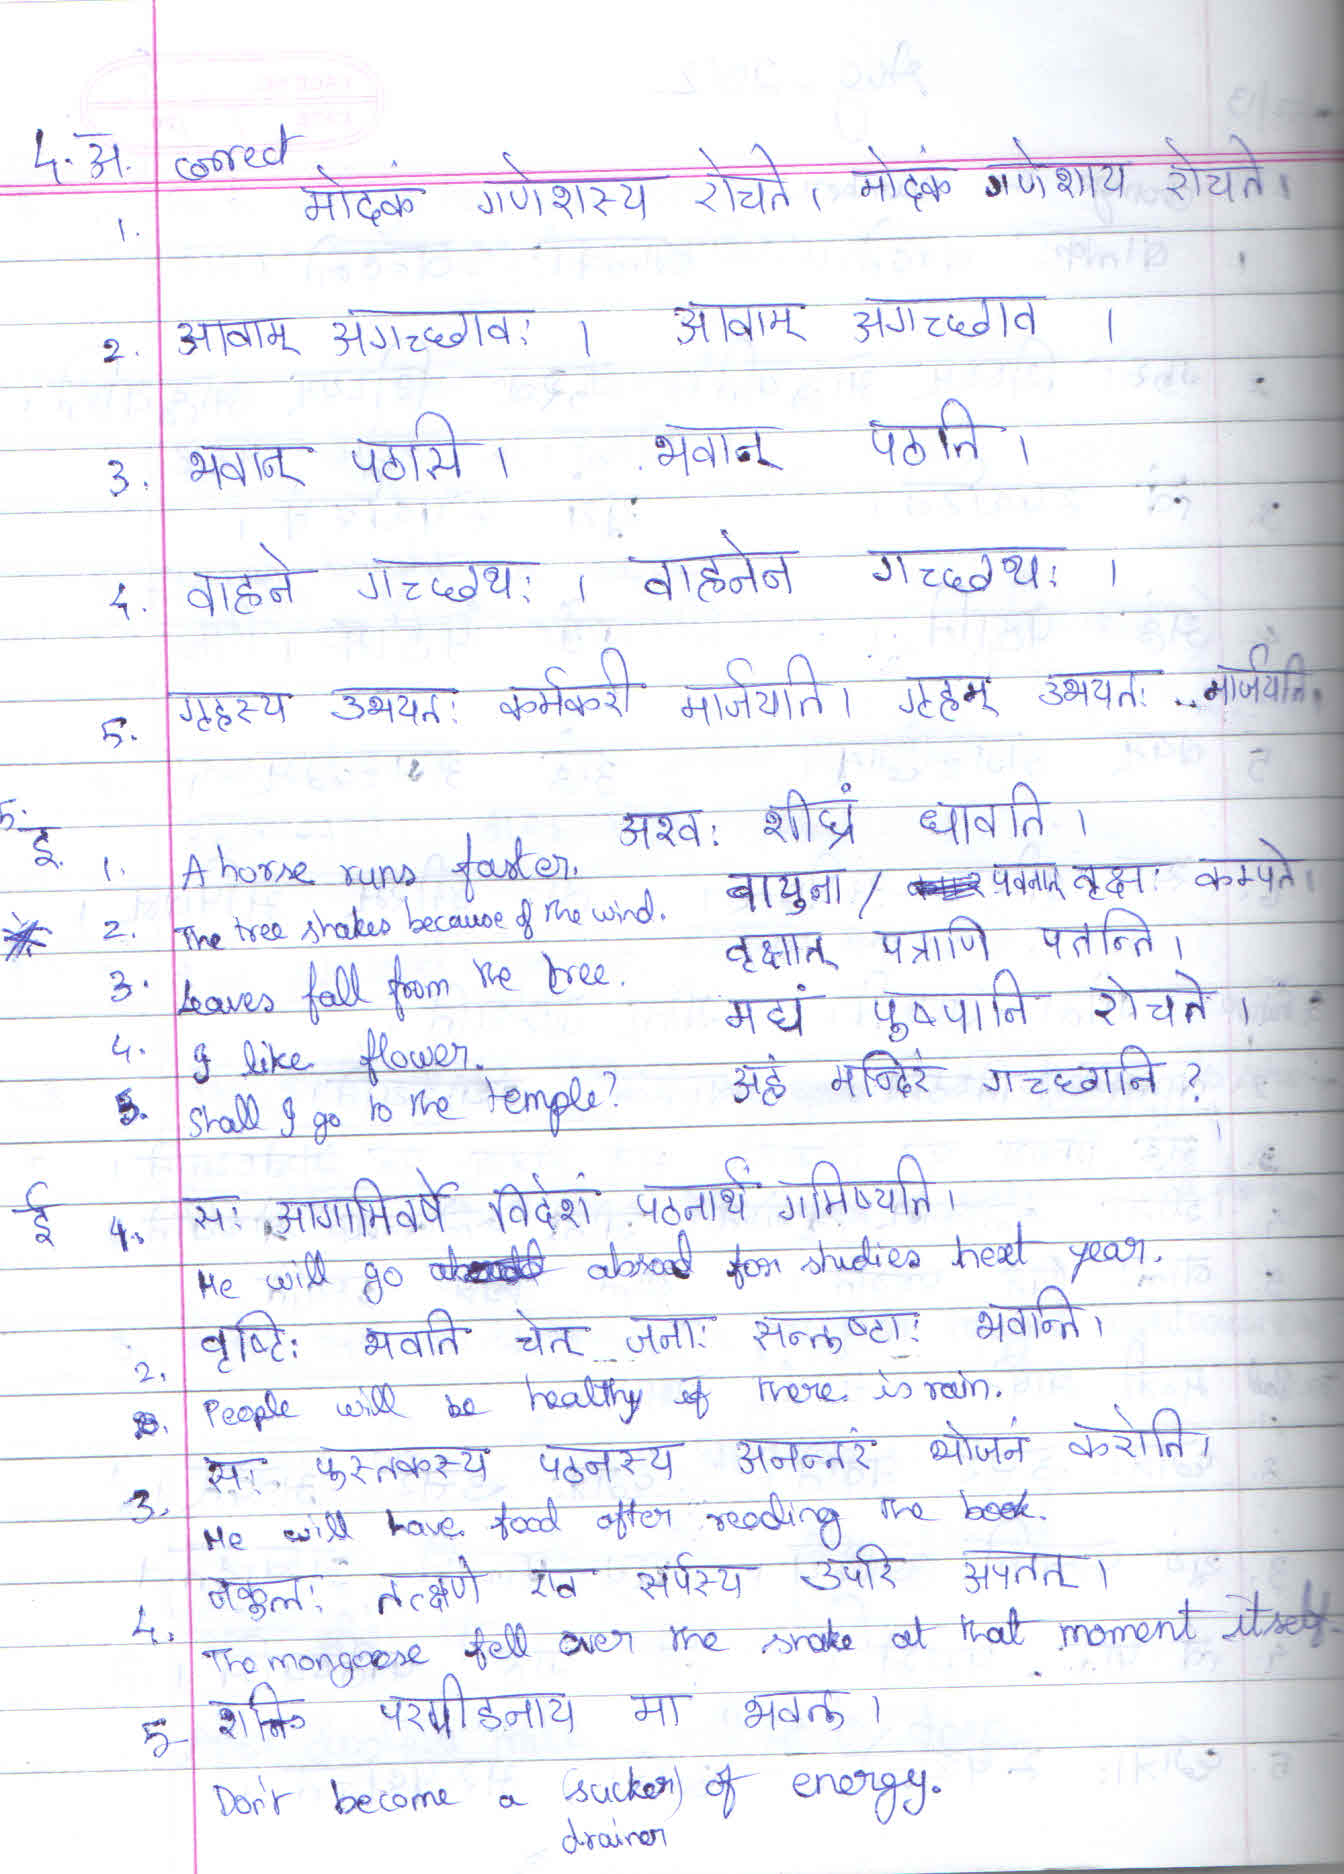 4. अ. correct
1. मोदकं गणेशस्य रोचते। मोदकं गणेशाय रोचते।
2. आवाम् अगच्छावः। आवाम् अगच्छाव।
3. भवान् पठसि। भवान् पठति।
4. वाहने गच्छथः। वाहनेन गच्छथः।
5. गृहस्य उभयतः कर्मकरी मार्जयति। गृहम् उभयतः .. मार्जयति।
5.
इ. 1. A horse runs faster. अश्वः शीघ्रं धावति।
2. The tree shakes because of the wind. वायुना / पवनात् वृक्षः कम्पते
3. Leaves fall from the tree. वृक्षात् पत्राणि पतन्ति।
4. I like flower. मह्यं पुष्पानि रोचते।
5. Shall I go to the temple? अहं मन्दिरं गच्छानि?
ई 1. सः आगामिवर्षे विदेशं पठनार्थं गमिष्यति।
He will go abroad for studies next year.
2. वृष्टिः भवति चेत् जनाः सन्तुष्टाः भवन्ति।
People will be healthy if there is rain.
3. सः पुस्तकस्य पठनस्य अनन्तरं भोजनं करोति।
He will have food after reading the book.
4. नकुलः तत्क्षणे एव सर्पस्य उपरि अपतत्।
The mongoose fell over the snake at that moment itself.
5 शक्तिः परपीडनाय मा भवतु।
Don't become a (sucker) of energy.
drainer